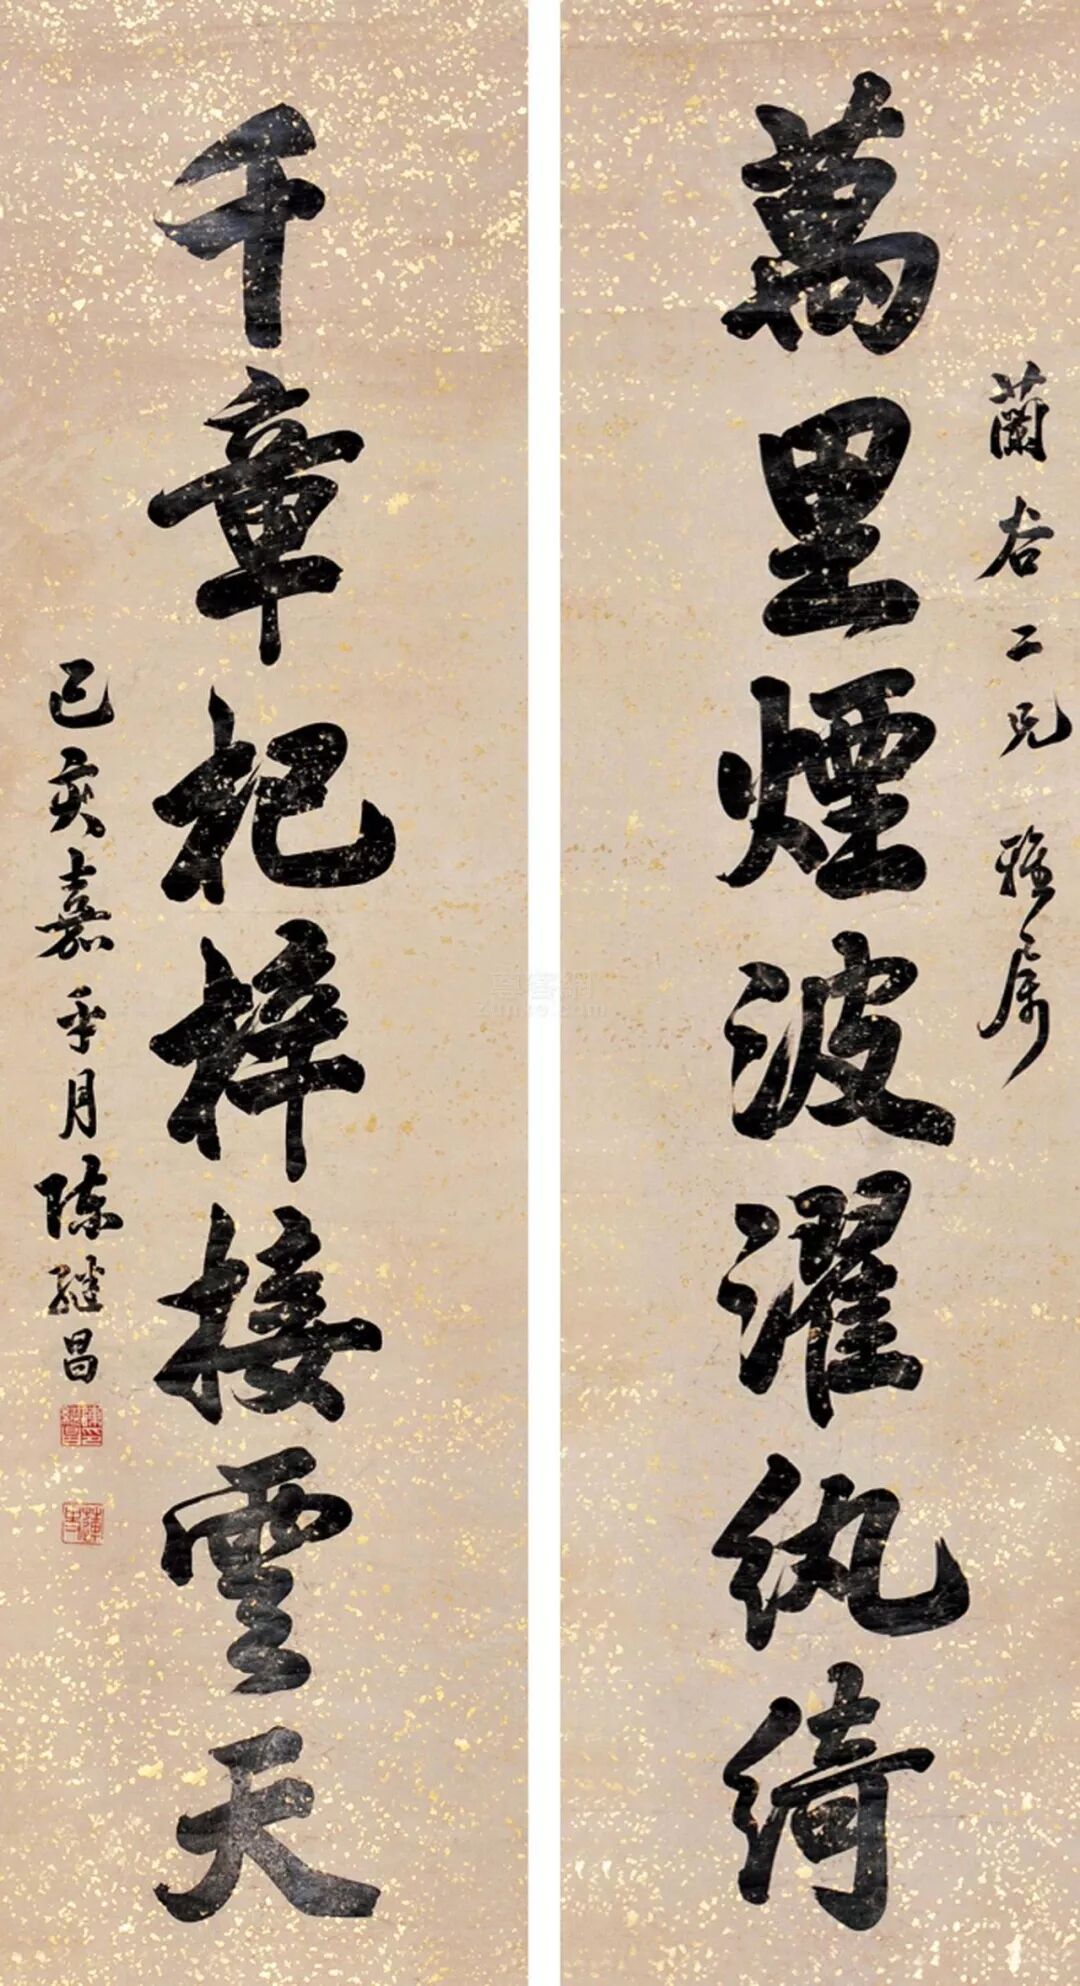 蘭谷二兄雅屬
萬里煙波濯紈綺
千章杞梓接雲天
己亥嘉平月陳繼昌
草書網